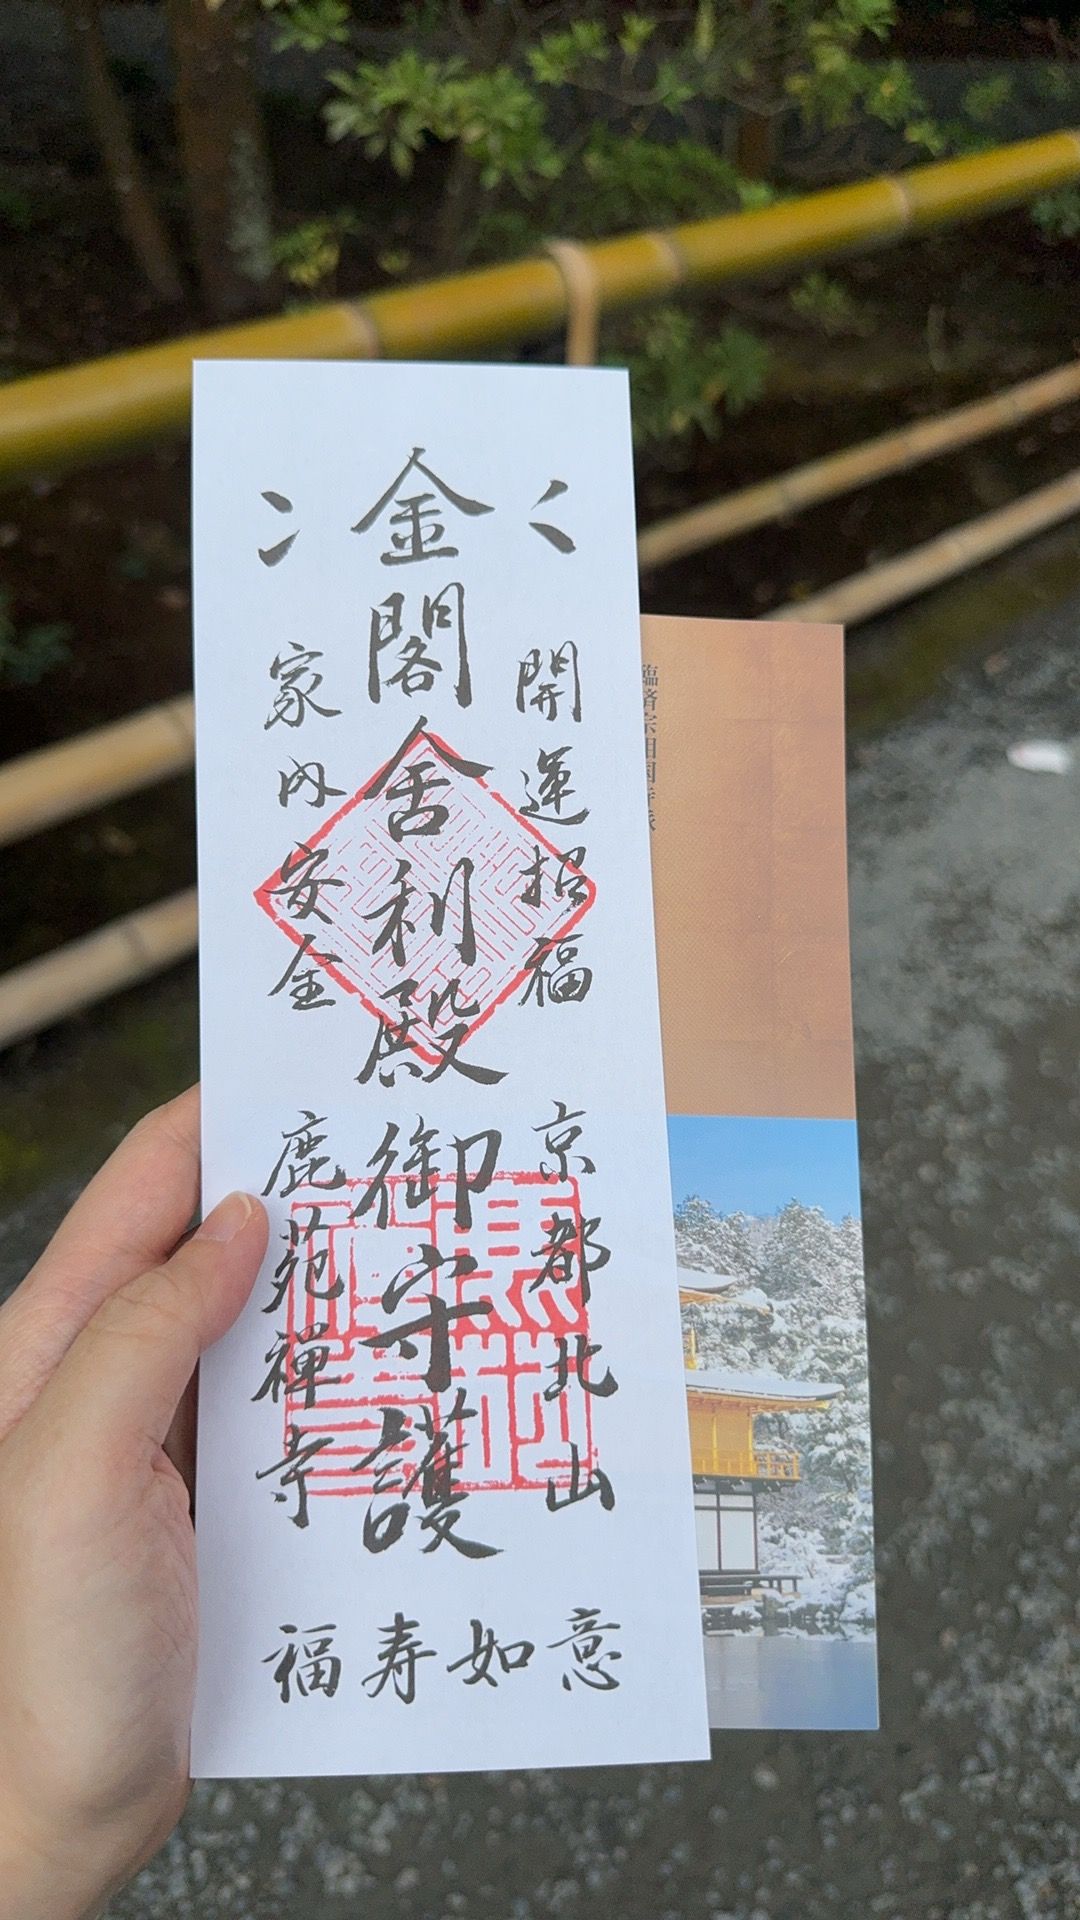 金閣舎利殿御守護
開運招福
家内安全
京都北山
鹿苑禅寺
福寿如意
臨済宗相国寺派